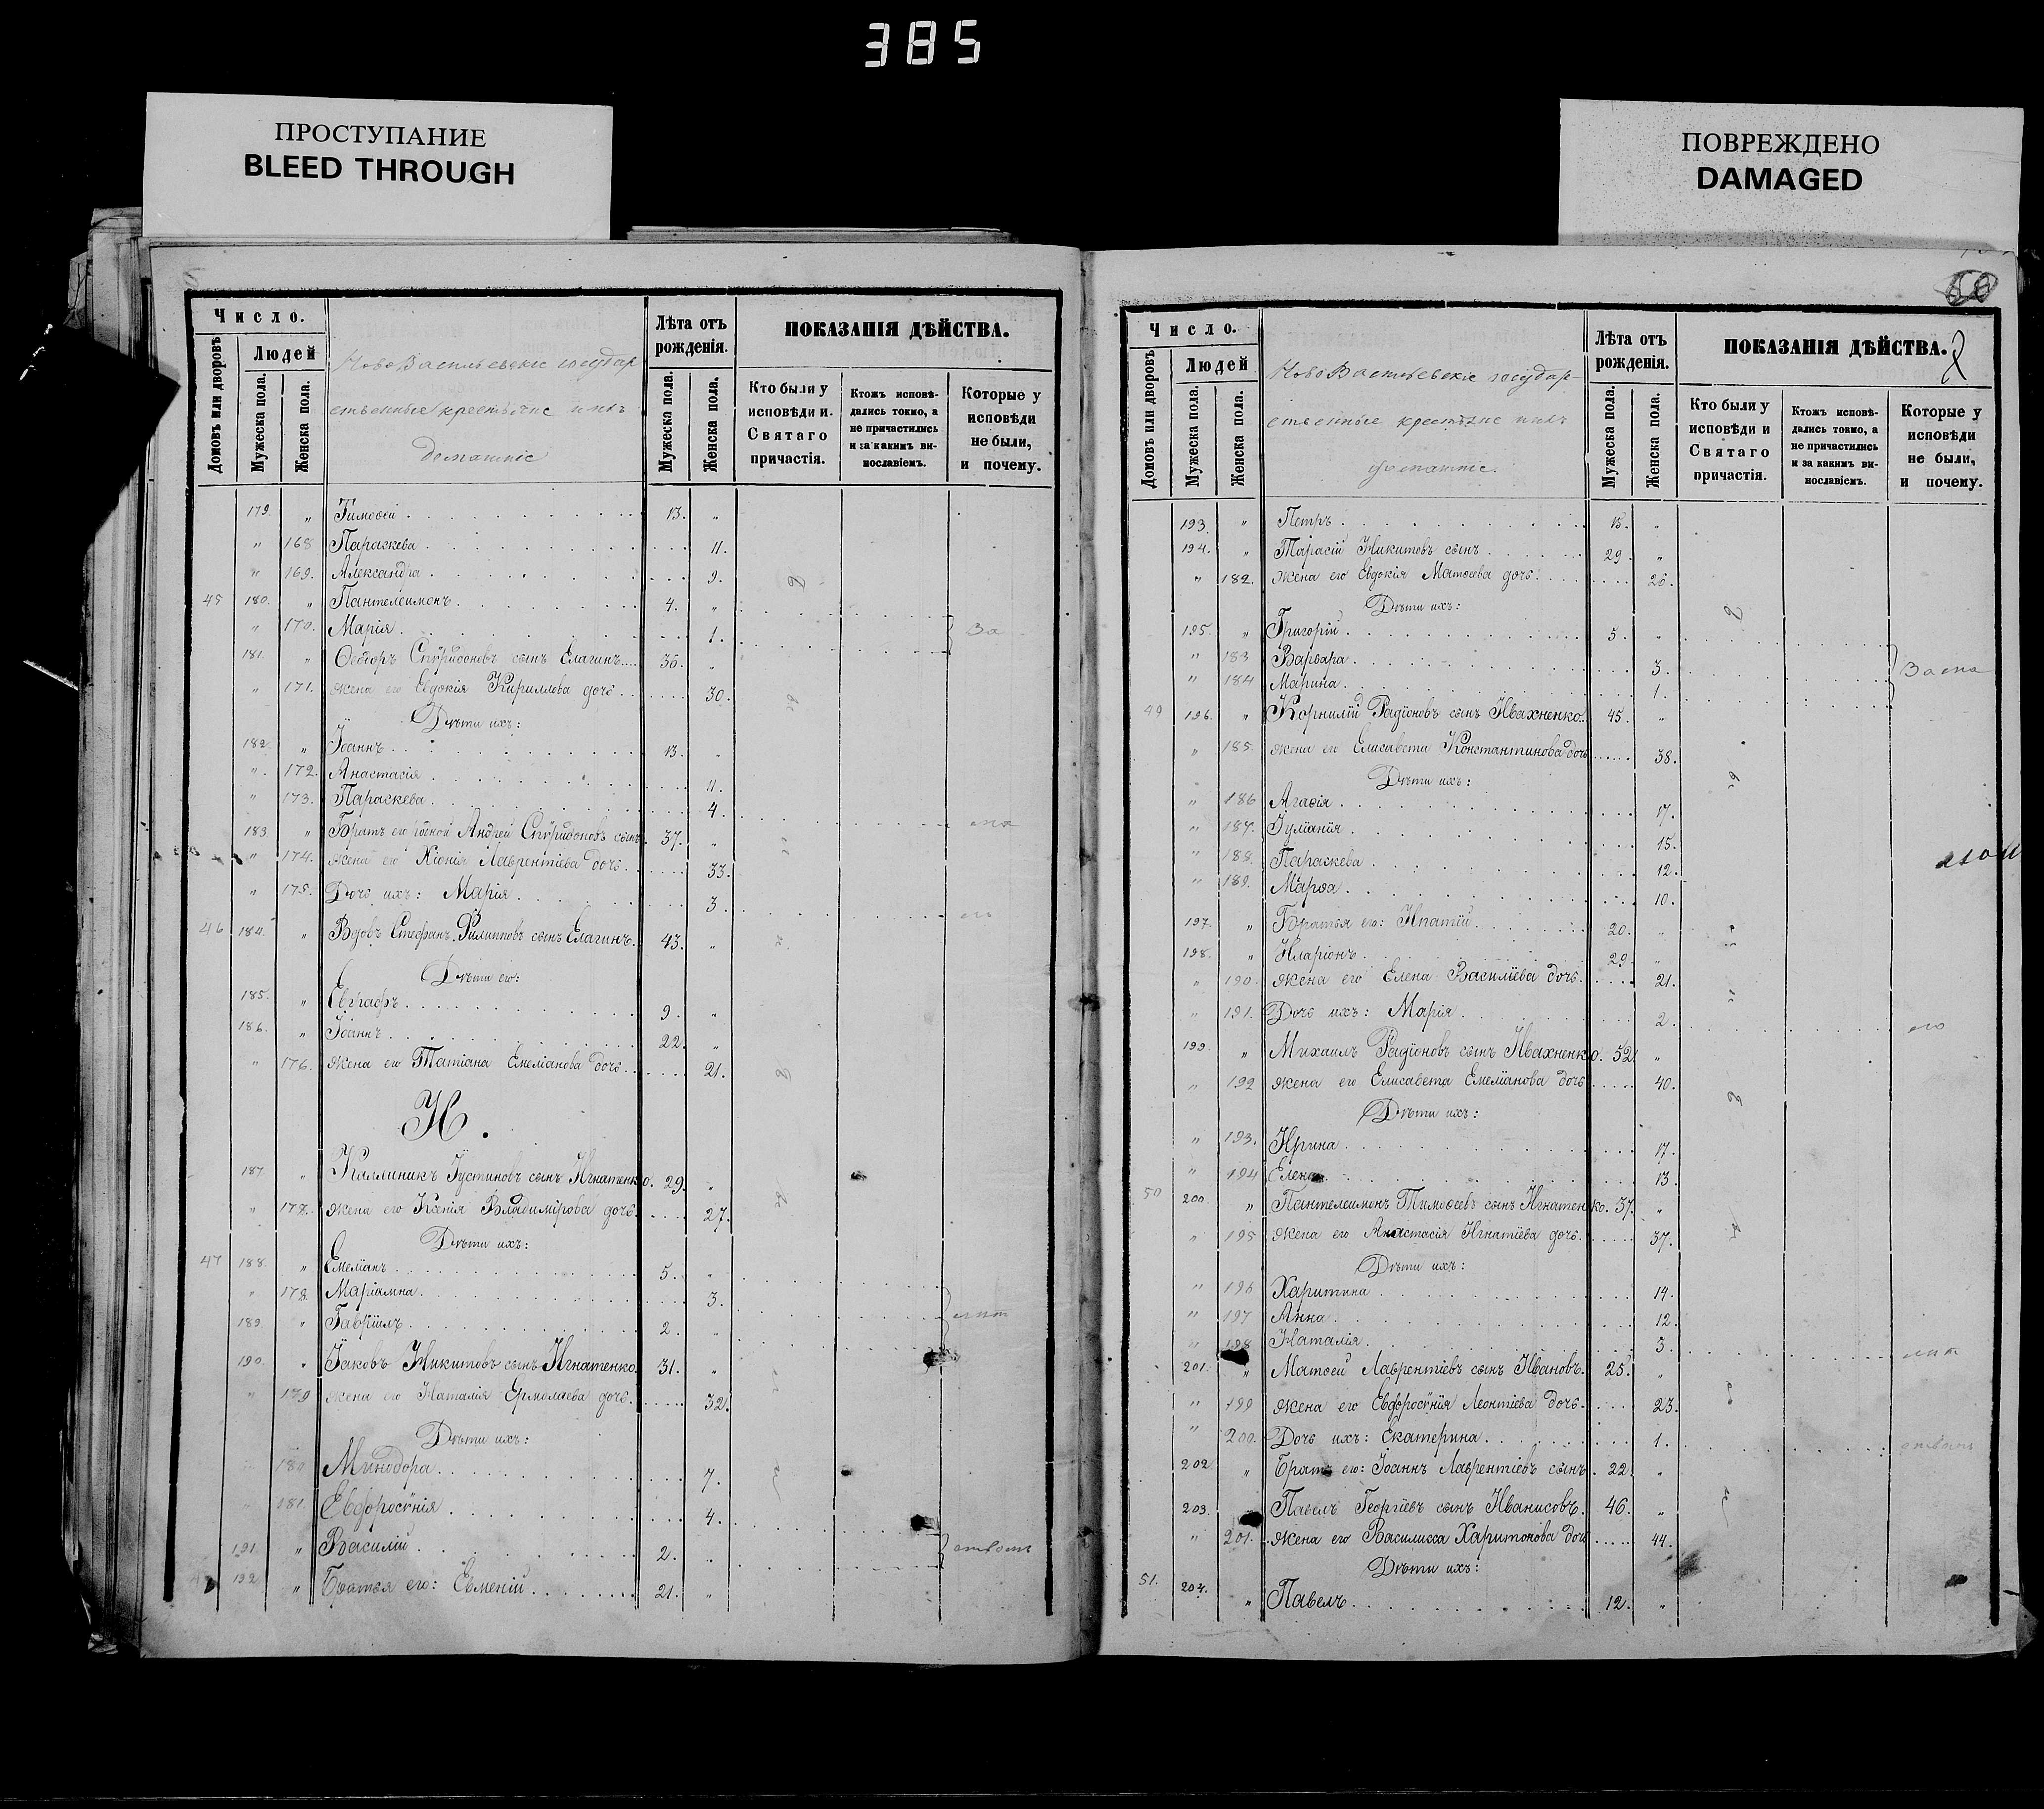 385
ПРОСТУПАНИЕ
BLEED THROUGH
ПОВРЕЖДЕНО
DAMAGED
Число.
Домовъ или дворовъ
Людей
Мужеска пола.
Женска пола.
НовоВасильевскіе государ
ственные крестьяне и ихъ
домашніе
Лѣта отъ рожденія.
Мужеска пола.
Женска пола.
ПОКАЗАНІЯ ДѢЙСТВА.
Кто были у исповѣди и Святаго причастія.
Ктожъ исповѣдались токмо, а не причастились и за какимъ винословіемъ.
Которые у исповѣди не были, и почему.
179. " Тимоѳей 13. "
" 168 Параскева 11.
" 169. Александра 9.
45 180. " Пантелеимонъ 4. "
" 170. Марія 1. За
181. " Ѳеодоръ Спѵридоновъ сынъ Елагинъ 36. "
" 171. жена его Евдокія Кириллова дочь 30.
Дѣти ихъ:
182. " Іоаннъ 13. "
" 172. Анастасія 11.
" 173. Параскева 4.
183. " Братъ его родной Андрей Спѵридоновъ сынъ 37. "
" 174. жена его Хіонія Лаврентіева дочь 33.
" 175. Дочь ихъ: Марія 3.
46 184. " Вдовъ Стефанъ Филипповъ сынъ Елагинъ. 43. "
Дѣти его:
185. " Евграфъ 9. "
186. " Іоаннъ 22. "
" 176. жена его Татіана Емеліанова дочь 21.
И.
187 " Каллиникъ Іустиновъ сынъ Игнатенко. 29. "
" 177. жена его Ксенія Владимірова дочь 27.
Дѣти ихъ:
47 188. " Емеліанъ 5. "
" 178. Маріамна 3.
189. " Гавріилъ 2. "
190. " Іаковъ Никитовъ сынъ Игнатенко 31. "
" 179 жена его Наталія Ермолаева дочь 32.
Дѣти ихъ:
180 Минодора 7.
" 181. Евфросѵнія 4.
191. " Василій 2. "
192 " Братья его: Евменій 21. "
Число.
Домовъ или дворовъ
Людей
Мужеска пола.
Женска пола.
НовоВасильевскіе государ-
ственные крестьяне и ихъ
домашніе.
Лѣта отъ рожденія.
Мужеска пола.
Женска пола.
ПОКАЗАНІЯ ДѢЙСТВА.
Кто были у исповѣди и Святаго причастія.
Ктожъ исповѣдались токмо, а не причастились и за какимъ винословіемъ.
Которые у исповѣди не были, и почему.
193. " Петръ 15. "
194. " Тарасій Никитовъ сынъ 29. "
" 182. жена его Евдокія Матѳеева дочь 26.
Дѣти ихъ:
195. " Григорій 5. "
" 183 Варвара 3.
" 184 Марина 1.
49 196. " Корнилій Радіоновъ сынъ Ивахненко. 45. "
" 185. жена его Елисавета Константинова дочь 38.
Дѣти ихъ:
" 186 Агаѳія 17.
" 187. Іуліанія 15.
" 188. Параскева 12.
" 189. Марѳа 10.
197. " Братья его: Ипатій 20. "
198. " Иларіонъ 29. "
" 190. жена его Елена Василіева дочь 21.
" 191. Дочь ихъ: Марія 2.
199. " Михаилъ Радіоновъ сынъ Ивахненко. 52. "
" 192 жена его Елисавета Емеліанова дочь 40.
Дѣти ихъ:
" 193. Ирина 17.
" 194 Елена 13.
50 200. " Пантелеимонъ Тимоѳеевъ сынъ Игнатенко. 37. "
" 195 жена его Анастасія Игнатіева дочь 37.
Дѣти ихъ:
" 196 Харитина 19.
" 197 Анна 12.
" 198 Наталія 3.
201. " Матѳей Лаврентіевъ сынъ Ивановъ. 25. "
" 199 жена его Евфросѵнія Леонтіева дочь 23.
" 200. Дочь ихъ: Екатерина 1.
202 " Братъ его: Іоаннъ Лаврентіевъ сынъ 22. "
203. Павелъ Георгіевъ сынъ Иванисовъ. 46. "
" 201. жена его Василисса Харитонова дочь 44.
Дѣти ихъ:
51. 204. " Павелъ 12. "